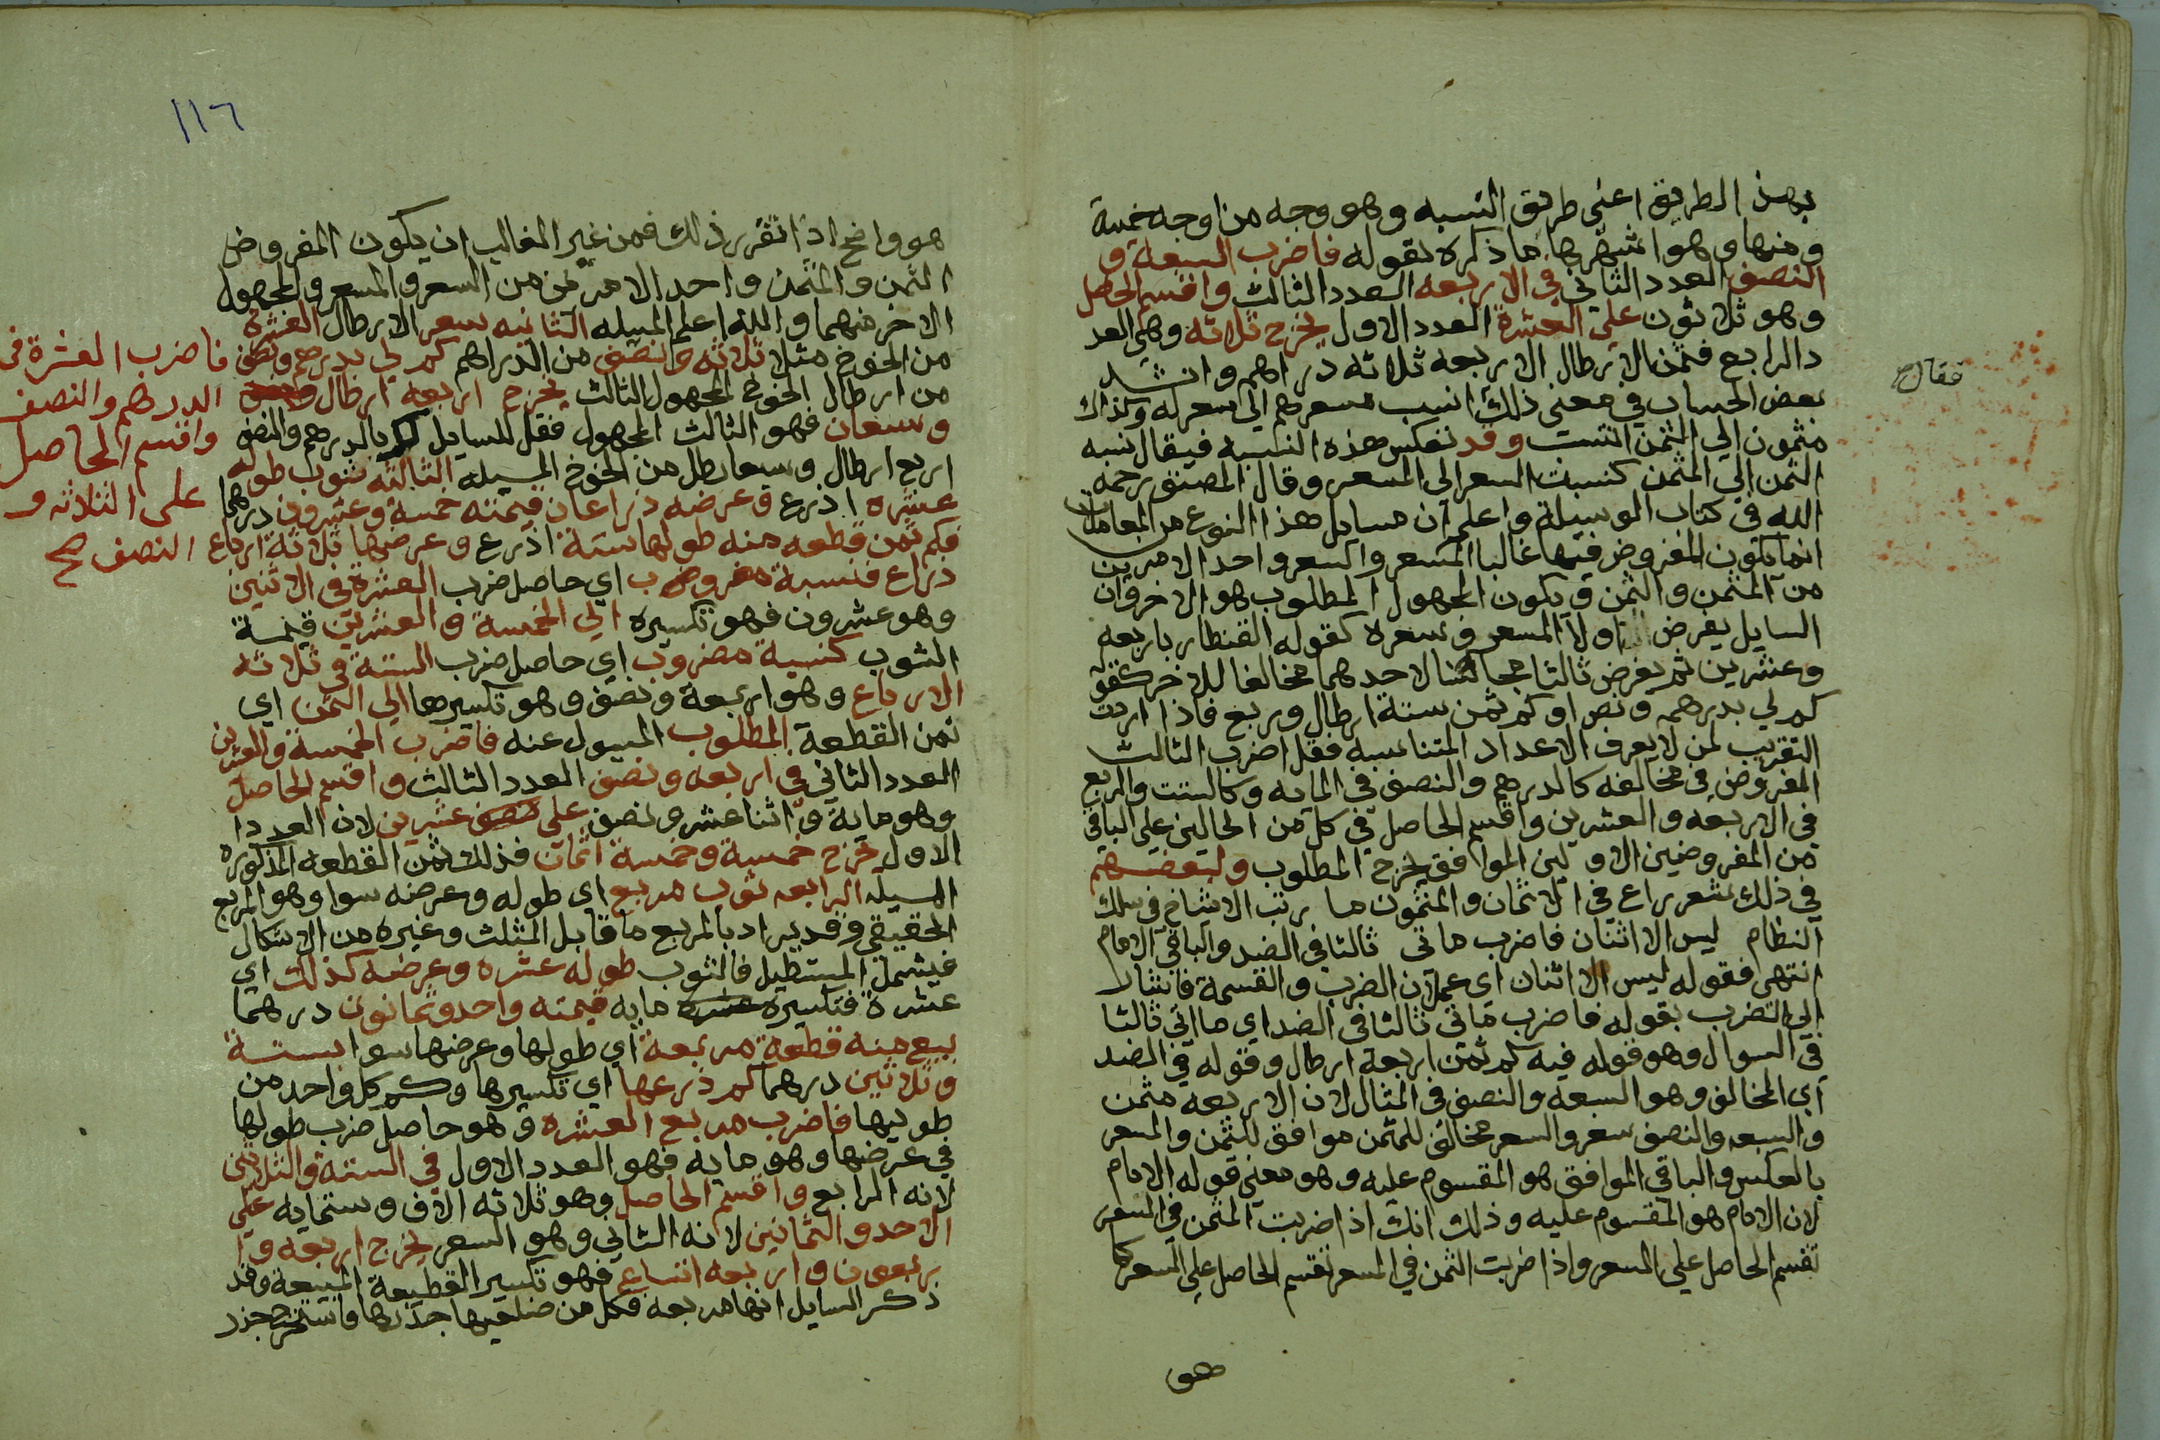 بهذ الطريق اعني طريق النسبه وهو وجه من اوجه خمسة
ومنها وهو اشهرها ما ذكره بقوله فاضرب السبعة و
النصف العدد الثاني في الاربعه العدد الثالث واقسم الحاصل
وهو ثلاثون علي العشرة العدد الاول يخرج ثلاثه وهي العد
د الرابع فثمن الارطال الاربعه ثلاثه دراهم وانشد
بعض الحساب في معني ذلك انسب مسعرهم الي سعر له وكذاك
فقال
مثمون الي الثمن انتسب وقد تعكس هذه النسبه فيقال نسبه
الثمن الي المثمن كنسبت السعر الي المسعر وقال المصنف رحمه
الله في كتاب الوسيلة واعلم ان مسايل هذا النوع من المعاملات
انما يكون المفروض فيها غالبا المسعر والسعر واحد الامرين
من المثمن والثمن ويكون المجهول المطلوب هو الاخر وان
السايل يفرض اولا المسعر وسعره كقوله القنطار باربعه
وعشرين ثم يفرض ثالثا مجانسا لاحدهما مخالفا للاخر كقوله
كم لي بدرهم ونص او كم ثمن ستة ارطال وربع فاذا اردت
التقريب لمن لا يعرف الاعداد المتناسبه فقل اضرب الثالث
المفروض في مخالفه كالدرهم والنصف في المايه وكالستت والربع
في الاربعه والعشرين واقسم الحاصل في كل من الحالين علي الباقي
من المفروضين الاولين الموافق يخرج المطلوب ولبعضهم
في ذلك شعر راع في الاثمان والمثمون ما رتب الاشياخ في سلك
النظام ليس الا اثنان فاضرب ما تي ثالثا في الضد والباقي الامام
انتهي فقوله ليس الا اثنان اي عملان الضرب والقسمة فاشار
الي الضرب بقوله فاضرب ما تي ثالثا في الضد اي ما اتي ثالثا
في السوال وهو قوله فيه كم ثمن اربعة ارطال وقوله في الضد
اي المخالف وهو السبعه والنصف في المثال لان الاربعه مثمن
والسبعه والنصف سعر والسعر مخالف للمثمن موافق للثمن والمسعر
بالعكس والباقي الموافق هو المقسوم عليه وهو معني قوله الامام
لان الامام هو المقسوم عليه وذلك انك اذا ضربت المثمن في السعر
تقسم الحاصل علي المسعر واذا ضربت الثمن في المسعر تقسم الحاصل علي السعر كما
هو
١١٦
هو واضح اذا تقرر ذلك فمن غير الغالب ان يكون المفروض
الثمن والمثمن واحد الامرين من السعر والمسعر والمجهول
الاخر منهما والله اعلم المسيله الثانيه سعر الارطال العشرة
من الخوخ مثلا ثلاثه ونصف من الدراهم كم لي بدرهم ونصف
فاضرب العشرة في
الدرهم والنصف
واقسم الحاصل
علي الثلاثه و
النصف صح
من ارطال الخوخ المجهول الثالث يخرج اربعه ارطال
وسبعان فهو الثالث المجهول فقل للسايل لك بالدرهم والنصف
اربع ارطال وسبعا رطل من الخوخ المسيله الثالثه ثوب طوله
عشره اذرع وعرضه ذراعان قيمته خمسة وعشرون درهما
فكم ثمن قطعه منه طولها ستة اذرع وعرضها ثلاثة ارباع
ذراع فنسبة مضروب اي حاصل ضرب العشرة في الاثنين
وهو عشرون فهو تكسيره الي الخمسة والعشرين قيمة
الثوب كنسبة مضروب اي حاصل ضرب الستة في ثلاثه
الارباع وهو اربعة ونصف وهو تكسيرها الي الثمن اي
ثمن القطعة المطلوب المسول عنه فاضرب الخمسة والعشرين
العدد الثاني في اربعه ونصف العدد الثالث واقسم الحاصل
وهو ماية واثنا عشر ونصف علي عشرين لان العدد ا
الاول يخرج خمسة وخمسة اثمان فذلك ثمن القطعه المذكوره
المسيله الرابعه ثوب مربع اي طوله وعرضه سوا وهو المربع
الحقيقي وقد يراد بالمربع ما قابل المثلث وغيره من الاشكال
فيشمل المستطيل فالثوب طوله عشره وعرضه كذلك اي
عشرة فتكسيره مايه قيمته واحد وثمانون درهما
بيع منه قطعة مربعة اي طولها وعرضها سوا بستة
وثلاثين درهما كم ذرعها اي تكسيرها وكم كل واحد من
طوليها فاضرب مربع العشره وهو حاصل ضرب طولها
في عرضها وهو مايه فهو العدد الاول في الستة والثلاثين
لانه الرابع واقسم الحاصل وهو ثلاثه الاف وستمايه علي
الاحد والثمانين لانه الثاني وهو السعر يخرج اربعه وا
ربعون واربعه اتساع فهو تكسير القطيعة المبيعة وقد
ذكر السايل انها مربعه فكل من ضلعيها جذرها فاستخرج جزر